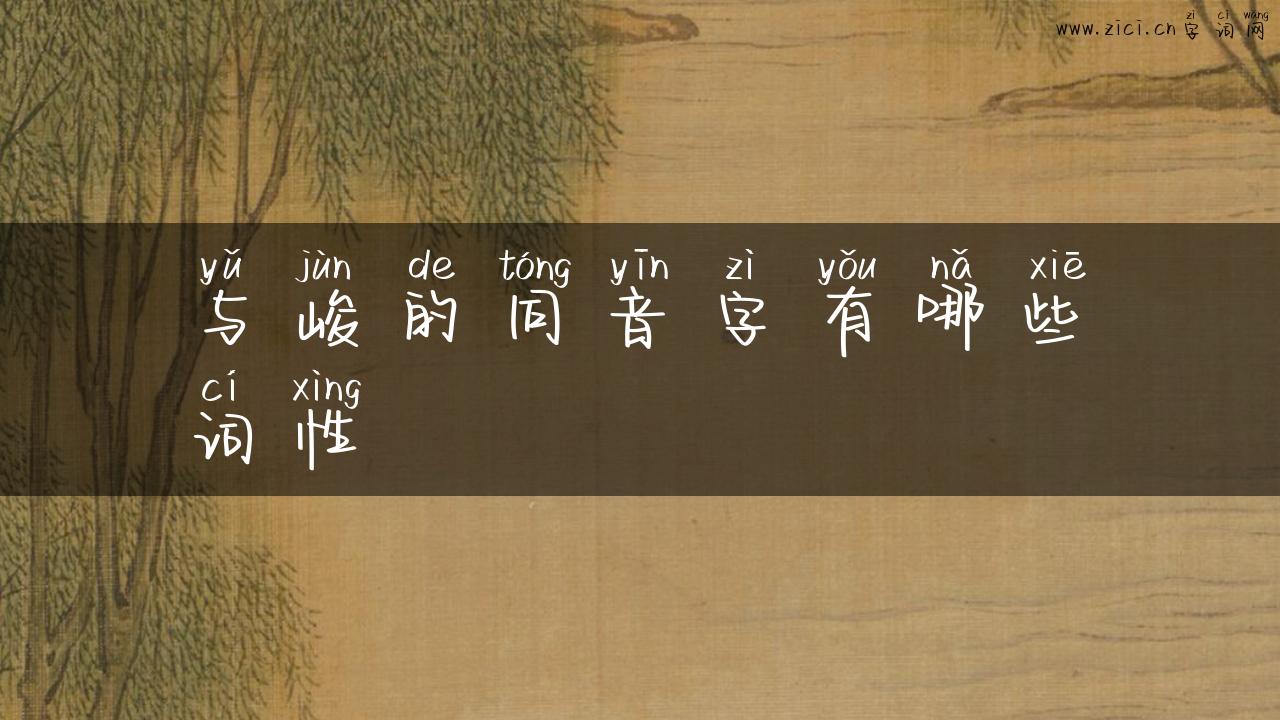 zì cí wǎng
www.zici.cn 字词网
yǔ jùn de tóng yīn zì yǒu nǎ xiē
与峻的同音字有哪些
cí xìng
词性